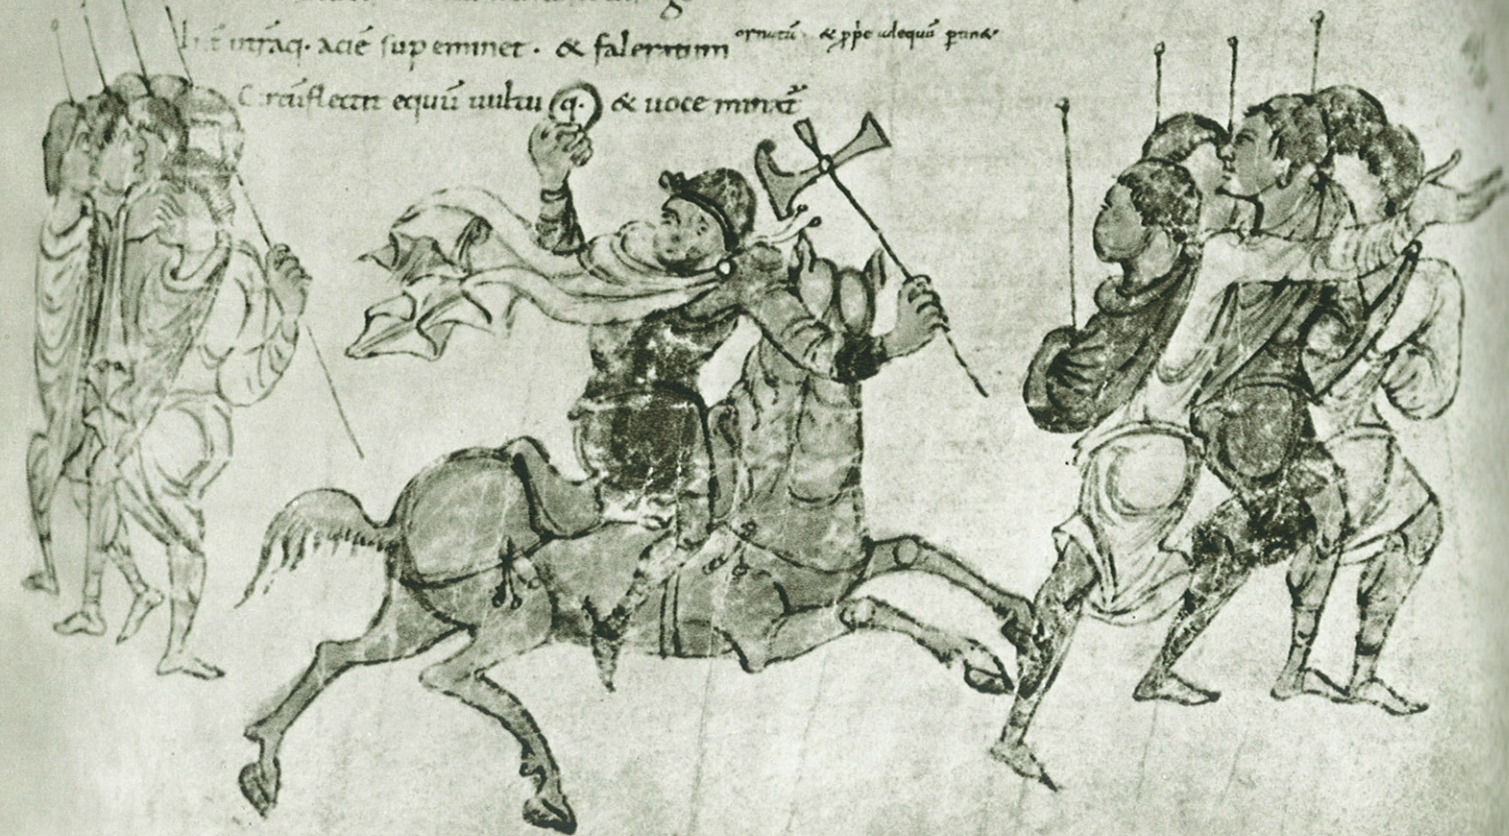 Int̄ utrāq· aciē sup eminet· & faleratum ornatū· & ꝓp̄e ad equū ptin&
Circūflectit equū uultuq· & uoce minat̄